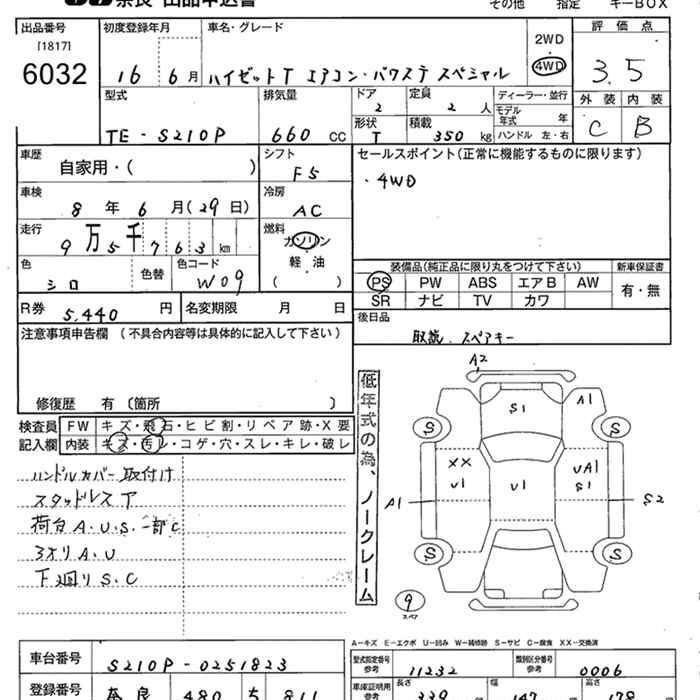 奈良 出品申込書 その他 指定 キーBOX
出品番号 [1817] 6032
初度登録年月 16 6月
車名・グレード ハイゼットT エアコン・パワステ スペシャル
2WD 4WD
評価点 3.5
外装 C 内装 B
型式 TE-S210P
排気量 660 CC
ドア 2
定員 2 人
形状 T
積載 350 kg
ディーラー・並行
モデル年式 年
ハンドル 左・右
車歴 自家用・( )
シフト F5
セールスポイント(正常に機能するものに限ります)
・4WD
車検 8年6月(29日)
冷房 AC
走行 9万5千763km
燃料 ガソリン 軽・油 ( )
色 シロ 色替
色コード W09
装備品(純正品に限り丸をつけて下さい) 新車保証書
PS PW ABS エアB AW 有・無
SR ナビ TV カワ
R券 5,440 円 名変期限 月 日
後日品 取説 スペアキー
注意事項申告欄 (不具合内容等は具体的に記入して下さい)
修復歴 有 〔箇所 〕
検査員記入欄
FW キズ・飛石・ヒビ割・リペア跡・X要
内装 キズ・汚レ・コゲ・穴・スレ・キレ・破レ
ハンドルカバー取付け
スタッドレスア
荷台A.U.S.一部C
3オリA.U
下廻りS.C
低年式の為、ノークレーム
A2
S1 A1
S S
XX U1 U1 UA1 S1
A1 S2
S S
9 スペア
A-キズ E-エクボ U-凹み W-補修跡 S-サビ C-腐食 XX-交換済
車台番号 S210P-0251823
型式指定番号 参考 11232
類別区分番号 参考 0006
登録番号 奈良 480 5 811
車庫証明用 参考 長さ 339 幅 147 高さ 178